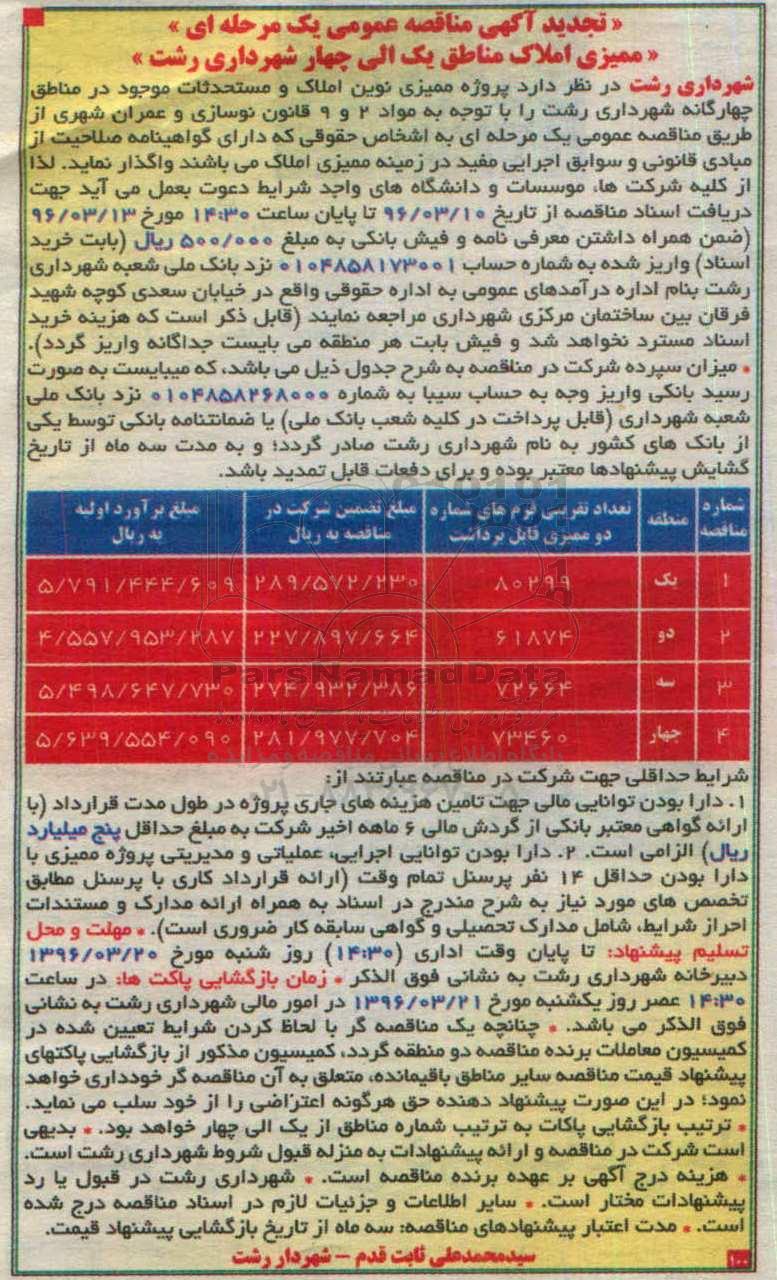 « تجدید آگهی مناقصه عمومی یک مرحله ای »
« ممیزی املاک مناطق یک الی چهار شهرداری رشت »
شهرداری رشت در نظر دارد پروژه ممیزی نوین املاک و مستحدثات موجود در مناطق
چهارگانه شهرداری رشت را با توجه به مواد ۲ و ۹ قانون نوسازی و عمران شهری از
طریق مناقصه عمومی یک مرحله ای به اشخاص حقوقی که دارای گواهینامه صلاحیت از
مبادی قانونی و سوابق اجرایی مفید در زمینه ممیزی املاک می باشند واگذار نماید. لذا
از کلیه شرکت ها، موسسات و دانشگاه های واجد شرایط دعوت بعمل می آید جهت
دریافت اسناد مناقصه از تاریخ ۹۶/۰۳/۱۰ تا پایان ساعت ۱۴:۳۰ مورخ ۹۶/۰۳/۱۳
(ضمن همراه داشتن معرفی نامه و فیش بانکی به مبلغ ۵۰۰/۰۰۰ ریال (بابت خرید
اسناد) واریز شده به شماره حساب ۰۱۰۴۸۵۸۱۷۳۰۰۱ نزد بانک ملی شعبه شهرداری
رشت بنام اداره درآمدهای عمومی به اداره حقوقی واقع در خیابان سعدی کوچه شهید
فرقان بین ساختمان مرکزی شهرداری مراجعه نمایند (قابل ذکر است که هزینه خرید
اسناد مسترد نخواهد شد و فیش بابت هر منطقه می بایست جداگانه واریز گردد).
* میزان سپرده شرکت در مناقصه به شرح جدول ذیل می باشد، که میبایست به صورت
رسید بانکی واریز وجه به حساب سیبا به شماره ۰۱۰۴۸۵۸۲۶۸۰۰۰ نزد بانک ملی
شعبه شهرداری (قابل پرداخت در کلیه شعب بانک ملی) یا ضمانتنامه بانکی توسط یکی
از بانک های کشور به نام شهرداری رشت صادر گردد؛ و به مدت سه ماه از تاریخ
گشایش پیشنهادها معتبر بوده و برای دفعات قابل تمدید باشد.
شماره مناقصه	منطقه	تعداد تقریبی فرم های شماره دو ممیزی قابل برداشت	مبلغ تضمین شرکت در مناقصه به ریال	مبلغ برآورد اولیه به ریال
۱	یک	۸۰۲۹۹	۲۸۹/۵۷۲/۲۳۰	۵/۷۹۱/۴۴۴/۶۰۹
۲	دو	۶۱۸۷۴	۲۲۷/۸۹۷/۶۶۴	۴/۵۵۷/۹۵۳/۲۸۷
۳	سه	۷۲۶۶۴	۲۷۴/۹۳۲/۳۸۶	۵/۴۹۸/۶۴۷/۷۳۰
۴	چهار	۷۳۴۶۰	۲۸۱/۹۷۷/۷۰۴	۵/۶۳۹/۵۵۴/۰۹۰
ParsNamadData
شرایط حداقلی جهت شرکت در مناقصه عبارتند از:
۱. دارا بودن توانایی مالی جهت تامین هزینه های جاری پروژه در طول مدت قرارداد (با
ارائه گواهی معتبر بانکی از گردش مالی ۶ ماهه اخیر شرکت به مبلغ حداقل پنج میلیارد
ریال) الزامی است. ۲. دارا بودن توانایی اجرایی، عملیاتی و مدیریتی پروژه ممیزی با
دارا بودن حداقل ۱۴ نفر پرسنل تمام وقت (ارائه قرارداد کاری با پرسنل مطابق
تخصص های مورد نیاز به شرح مندرج در اسناد به همراه ارائه مدارک و مستندات
احراز شرایط، شامل مدارک تحصیلی و گواهی سابقه کار ضروری است). * مهلت و محل
تسلیم پیشنهاد: تا پایان وقت اداری (۱۴:۳۰) روز شنبه مورخ ۱۳۹۶/۰۳/۲۰
دبیرخانه شهرداری رشت به نشانی فوق الذکر * زمان بازگشایی پاکت ها: در ساعت
۱۴:۳۰ عصر روز یکشنبه مورخ ۱۳۹۶/۰۳/۲۱ در امور مالی شهرداری رشت به نشانی
فوق الذکر می باشد. * چنانچه یک مناقصه گر با لحاظ کردن شرایط تعیین شده در
کمیسیون معاملات برنده مناقصه دو منطقه گردد، کمیسیون مذکور از بازگشایی پاکتهای
پیشنهاد قیمت مناقصه سایر مناطق باقیمانده، متعلق به آن مناقصه گر خودداری خواهد
نمود؛ در این صورت پیشنهاد دهنده حق هرگونه اعتراضی را از خود سلب می نماید.
* ترتیب بازگشایی پاکات به ترتیب شماره مناطق از یک الی چهار خواهد بود. * بدیهی
است شرکت در مناقصه و ارائه پیشنهادات به منزله قبول شروط شهرداری رشت است.
* هزینه درج آگهی بر عهده برنده مناقصه است. * شهرداری رشت در قبول یا رد
پیشنهادات مختار است. * سایر اطلاعات و جزئیات لازم در اسناد مناقصه درج شده
است. * مدت اعتبار پیشنهادهای مناقصه: سه ماه از تاریخ بازگشایی پیشنهاد قیمت.
سیدمحمدعلی ثابت قدم – شهردار رشت
۱۰۰